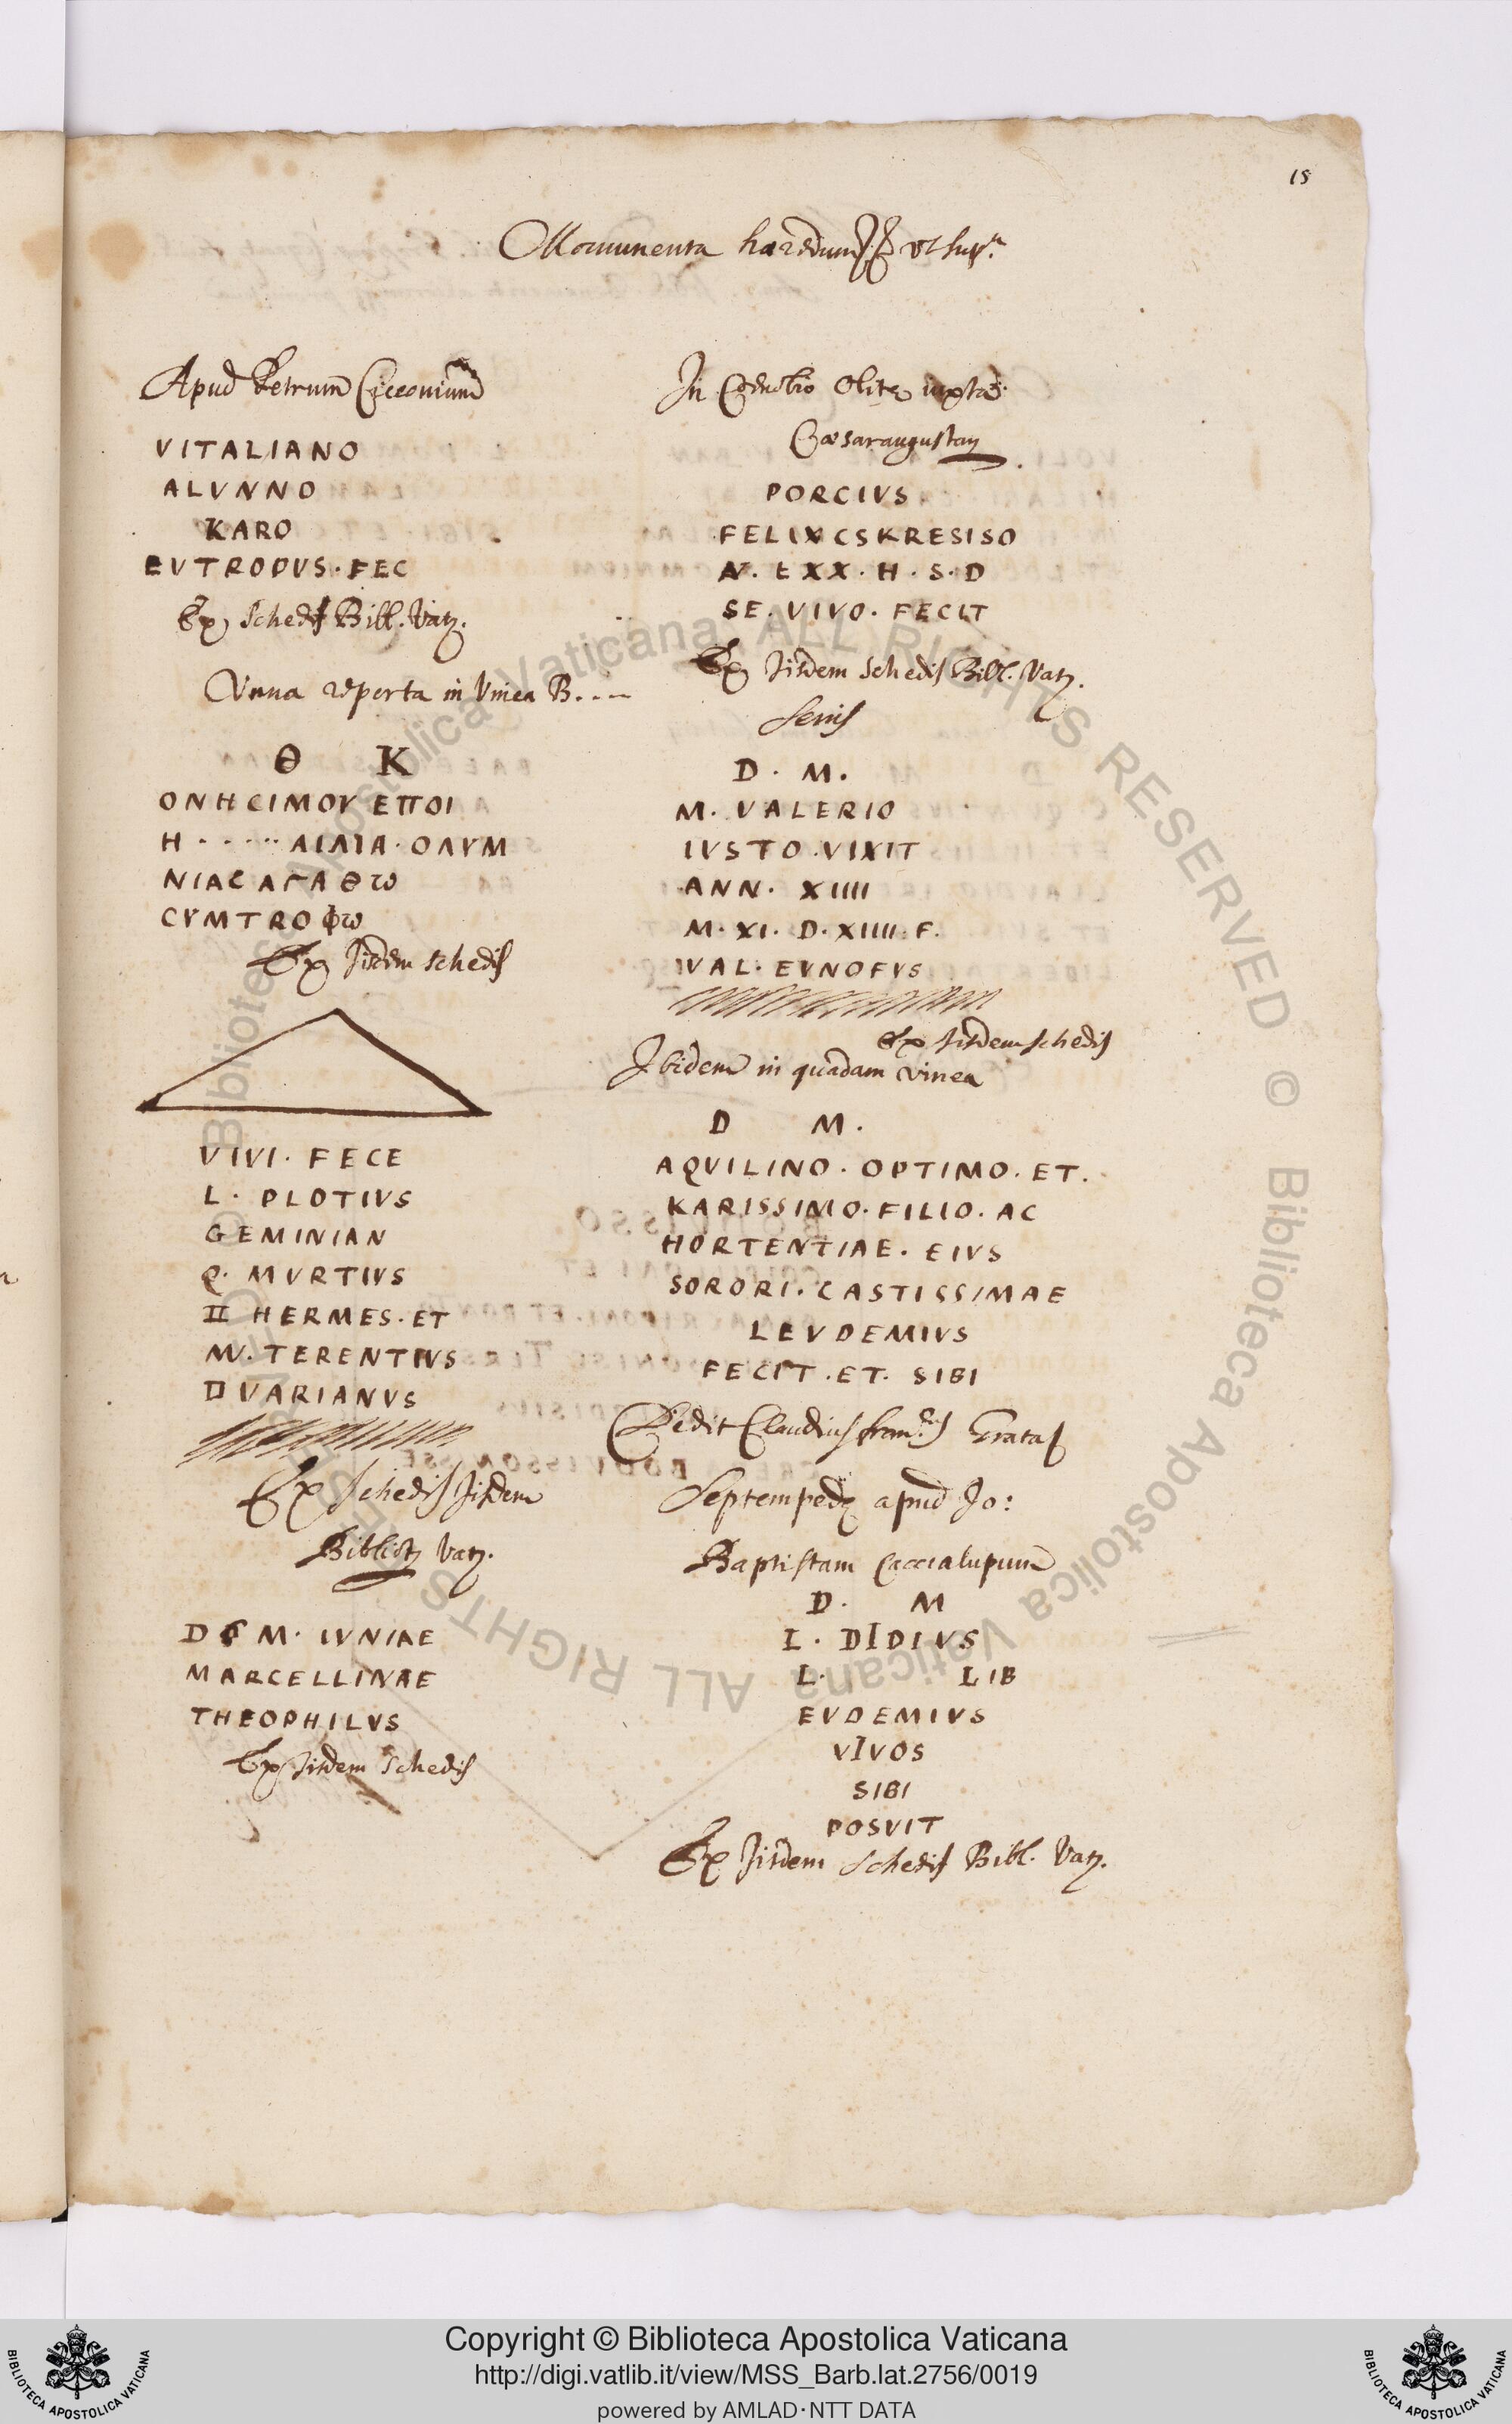 15
Monumenta hæredum ff. vt supra
Apud Petrum Cicconium
VITALIANO
ALVNNO
KARO
EVTROPVS · FEC
Ex Schedis Bibl. Vat.
Vrna reperta in Vinea B....
Θ K
ΟΝΗCΙΜΟΥ ΕΠΟΙ
Η · · · · · ΑΙΛΙΑ · ΟΛΥΜ
ΝΙΑC ΑΓΑΘω
CΥΜΤΡΟΦω
Ex Iisdem schedis
VIVI · FECE
L · PLOTIVS
GEMINIAN
Q · MVRTIVS
II HERMES · ET
M. TERENTIVS
VARIANVS
Ex schedis Iisdem
Bibliot. Vat.
D M · IVNIAE
MARCELLINAE
THEOPHILVS
Ex Iisdem schedis
In Cœnobio Olite iuxta
Cæsaraugustam
PORCIVS
FELIX CSKRESISO
N. LXX · H · S · D
SE · VIVO · FECIT
Ex Iisdem schedis Bibl. Vat.
Senis
D · M ·
M · VALERIO
IVSTO · VIXIT
ANN · XIIII
M · XI · D · XIIII · F ·
VAL · EVNOFVS
Ex Iisdem schedis
Ibidem in quadam vinea
D M ·
AQVILINO · OPTIMO · ET ·
KARISSIMO · FILIO · AC
HORTENTIAE · EIVS
SORORI · CASTISSIMAE
LEVDEMIVS
FECIT · ET · SIBI
Dedit Claudius
Septempedæ apud Io:
Baptistam Caccialupum
D · M
L · DIDIVS
L · LIB
EVDEMIVS
VIVOS
SIBI
POSVIT
Ex Iisdem schedis Bibl. Vat.
Biblioteca Apostolica Vaticana ALL RIGHTS RESERVED © Biblioteca Apostolica Vaticana ALL RIGHTS RESERVED ©
Copyright © Biblioteca Apostolica Vaticana
http://digi.vatlib.it/view/MSS_Barb.lat.2756/0019
powered by AMLAD·NTT DATA
BIBLIOTECA APOSTOLICA VATICANA
BIBLIOTECA APOSTOLICA VATICANA